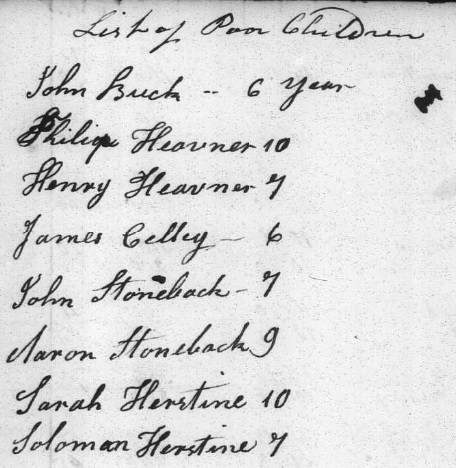 List of Poor Children
John Buck -- 6 Year
Philip Heavner 10
Henry Heavner 7
James Celley - 6
John Stoneback - 7
Aaron Stoneback 9
Sarah Herstine 10
Soloman Herstine 7